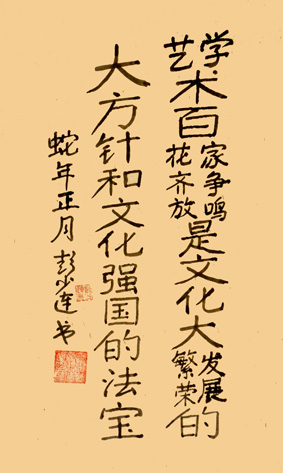 学艺术百家争鸣花齐放是文化大发展繁荣的
大方针和文化强国的法宝
蛇年正月彭少连书